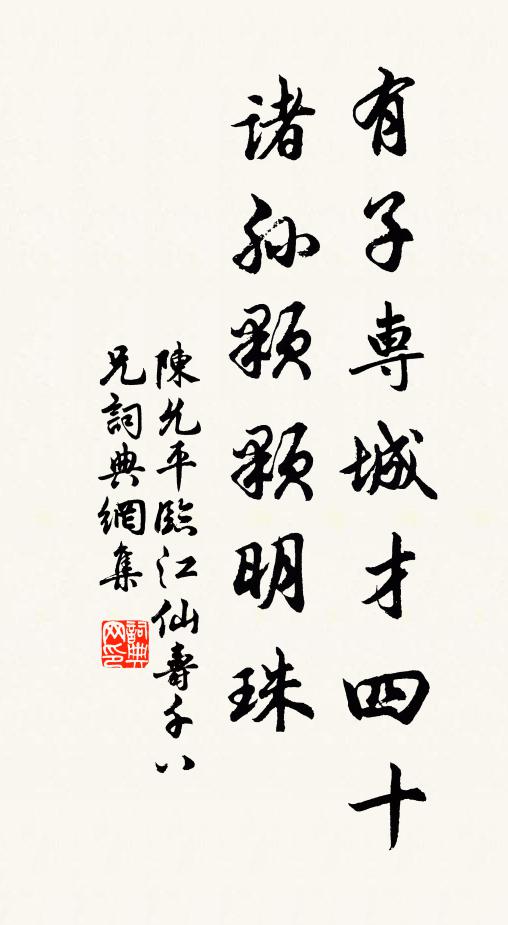 有子専城才四十
諸孙顆顆明珠
陳允平臨江仙壽千八
兄詞典網集
詞典网印